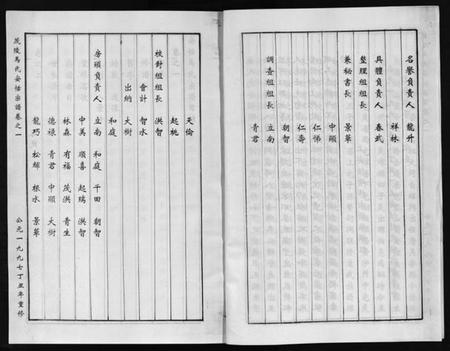 名譽負責人 龍升
祥林
具體負責人 春武
整理組組長
兼秘書長 景華
中頤
仁悌
仁壽
朝智
調查組組長 立南
青君
天倫
起桃
校對組組長 洪智
會計 智水
出納 大樹
和庭
房頭負責人 立南 和庭 千田 朝智
中美 順喜 起瑞 洪智
林森 有福 茂洪 青生
德祿 青君 中頤 大樹
龍巧 松輝 根水 景華
茂陵馬氏安恬宗譜卷之一
公元一九九七丁丑年重修